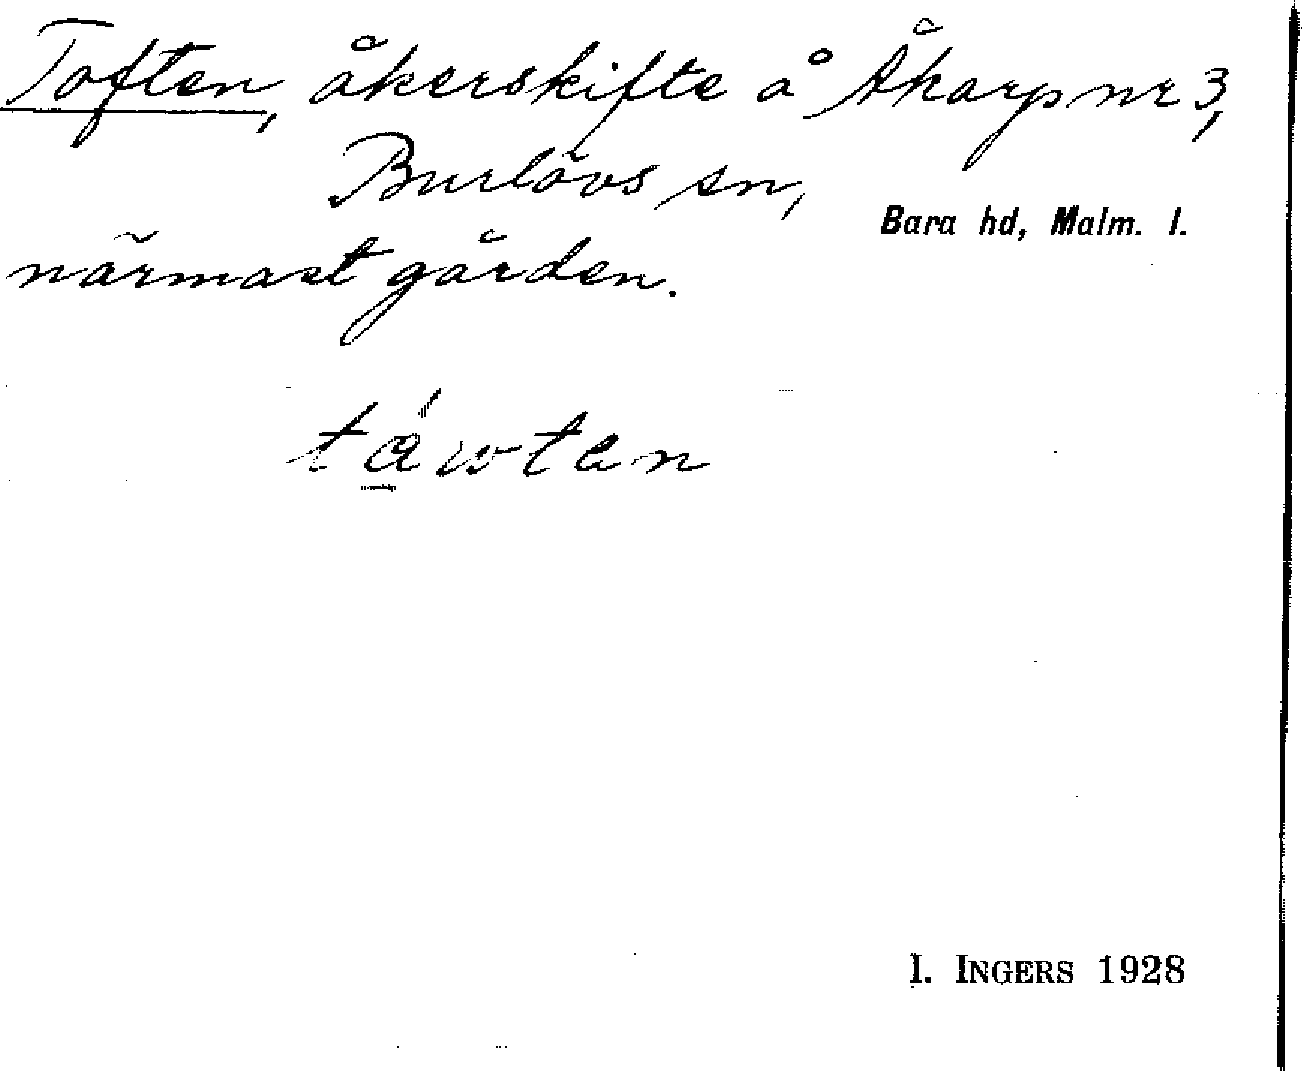 Toften, åkerskifte å Åkarp nr 3,
Burlövs sn,
Bara hd, Malm. l.
närmast gården.
táwtan
I. INGERS 1928